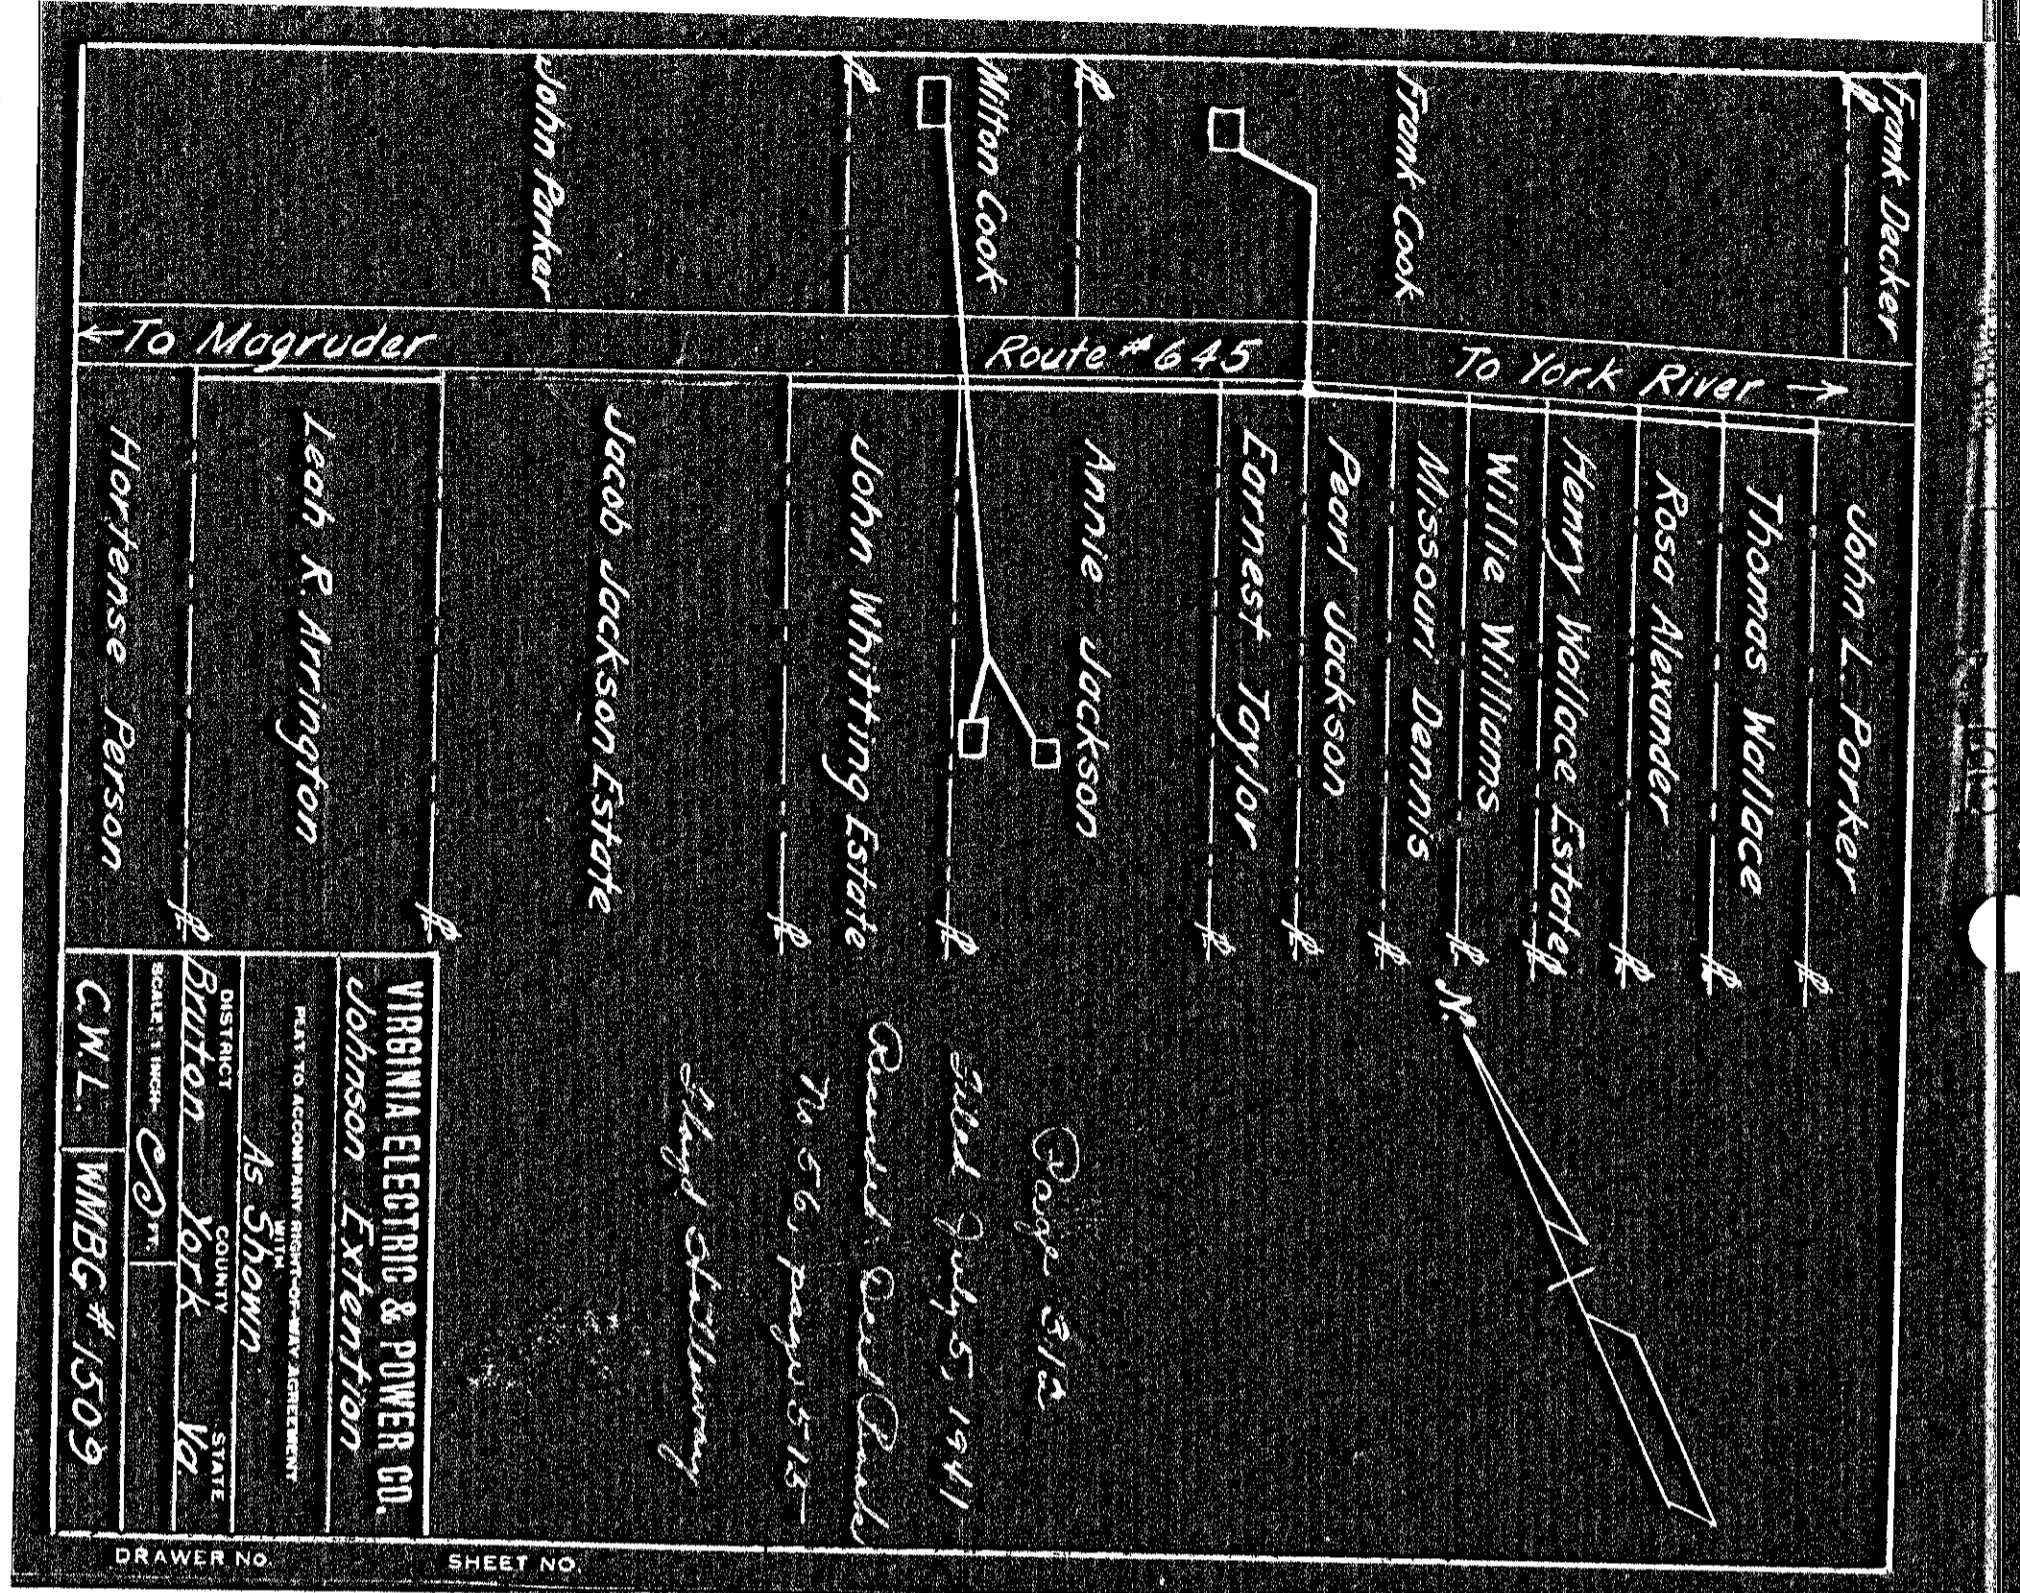 Frank Decker
Frank Cook
Milton Cook
John Parker
← To Magruder
Route # 645
To York River →
John L. Parker
Thomas Wallace
Rosa Alexander
Henry Wallace Estate
Willie Williams
Missouri Dennis
Pearl Jackson
Earnest Taylor
Annie Jackson
John Whitting Estate
Jacob Jackson Estate
Leah R. Arrington
Hortense Person
N.
Page 512
Filed July 5, 1941
Deed
No 56, page 515
VIRGINIA ELECTRIC & POWER CO.
Johnson Extention
PLAT TO ACCOMPANY RIGHT-OF-WAY AGREEMENT
WITH
As Shown
DISTRICT COUNTY STATE
Bruton York Va.
SCALE: 1 INCH= FT.
C.W.L. WMBG # 1509
DRAWER NO. SHEET NO.